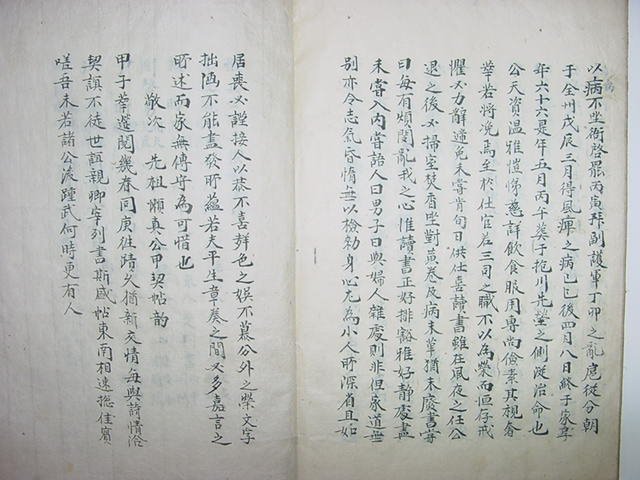 以病不坐衙啓罷丙寅拜副護軍丁卯之亂扈從分朝
于全州戊辰三月得風痺之病己巳後四月八日終于家享
年六十六是年五月丙午葬于抱川先塋之側從治命也
公天資温雅愷悌慈詳飲食服用專尚儉素其視奢
華若將浼焉至於仕宦居三司之職不以為榮而恒存戒
懼必力辭遞免未嘗肯旬日供仕喜讀書雖在夙夜之任公
退之後必掃室焚香坐對黃卷及病未革猶未廢書嘗
曰每有煩悶亂我之心惟讀書正好排豁雅好靜處晝
未嘗入内嘗語人曰男子曰與婦人雜處則非但家道無
別亦令志氣昏惰無以檢勅身心尤為小人所深省且如
居喪必謹接人以恭不喜聲色之娱不慕分外之榮文字
拙滷不能盡發所蘊若夫平生章奏之間必多嘉言之
所述而家無傳守為可惜也
敬次先祖懶真公甲契帖韵
甲子華還閱幾春同庚徃蹟久猶新交情每與詩情洽
契誼不徒世誼親卿宰列書斯感帖東南相遠揔佳賓
嗟吾未若諸公後踵武何時更有人